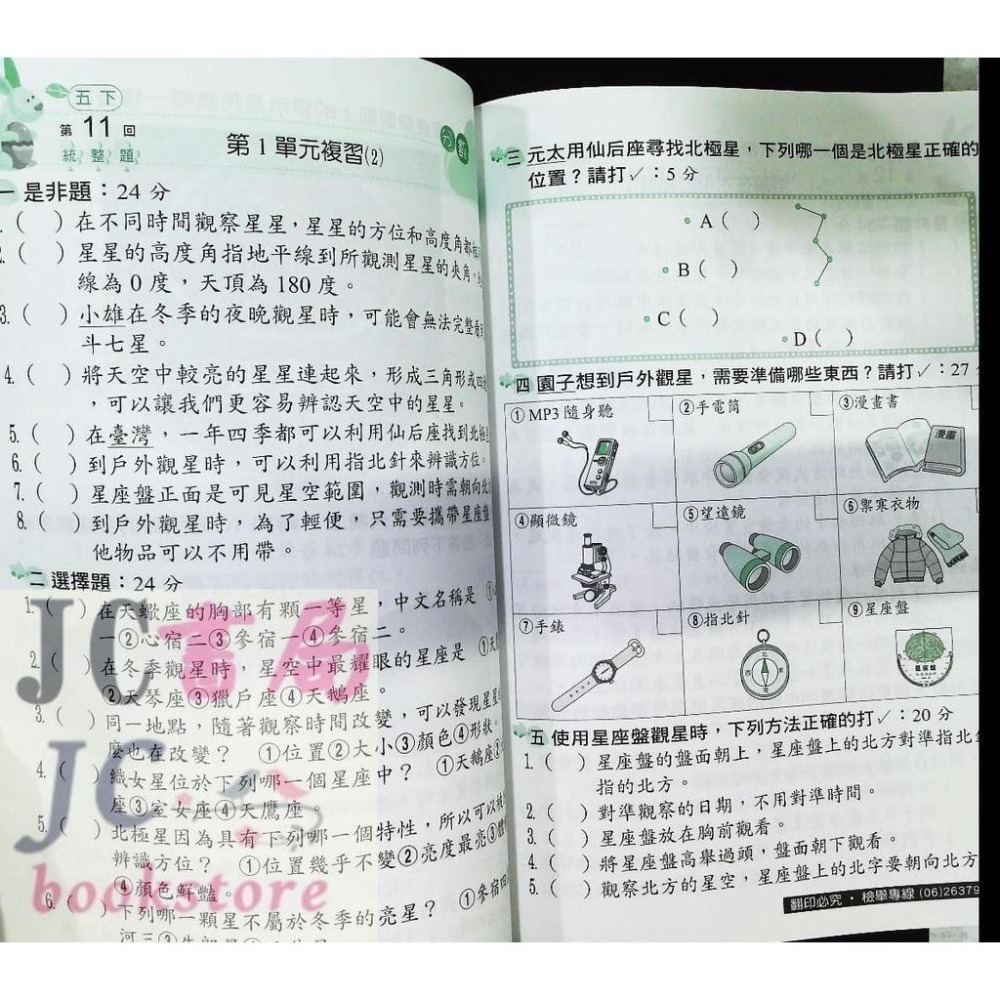 五下
第11回
統整題
第1單元複習(2)
一 是非題：24分
( )在不同時間觀察星星，星星的方位和高度角都
( )星星的高度角指地平線到所觀測星星的夾角，
線為0度，天頂為180度。
3.( )小雄在冬季的夜晚觀星時，可能會無法完整看到
斗七星。
4.( )將天空中較亮的星星連起來，形成三角形或四
，可以讓我們更容易辨認天空中的星星。
5.( )在臺灣，一年四季都可以利用仙后座找到北極
6.( )到戶外觀星時，可以利用指北針來辨識方位。
7.( )星座盤正面是可見星空範圍，觀測時需朝向北
8.( )到戶外觀星時，為了輕便，只需要攜帶星座盤
他物品可以不用帶。
二 選擇題：24分
1.( )在天蠍座的胸部有顆一等星，中文名稱是 ①
一②心宿二③參宿一④參宿二。
2.( )在冬季觀星時，星空中最耀眼的星座是 ①天
②天琴座③獵戶座④天鵝座。
3.( )同一地點，隨著觀察時間改變，可以發現星星
麼也在改變？ ①位置②大小③顏色④形狀。
4.( )織女星位於下列哪一個星座中？ ①天鵝座②
座③室女座④天鷹座。
5.( )北極星因為具有下列哪一個特性，所以可以
辨識方位？ ①位置幾乎不變②亮度最亮③
④顏色鮮豔。
6.( )下列哪一顆星不屬於冬季的亮星？ ①參宿四
河三③
三 元太用仙后座尋找北極星，下列哪一個是北極星正確的
位置？請打✓：5分
A( )
B( )
C( )
D( )
四 園子想到戶外觀星，需要準備哪些東西？請打✓：27
①MP3隨身聽
②手電筒
③漫畫書
漫畫
④顯微鏡
⑤望遠鏡
⑥禦寒衣物
⑦手錶
⑧指北針
⑨星座盤
北
星座盤
五 使用星座盤觀星時，下列方法正確的打✓：20分
1.( )星座盤的盤面朝上，星座盤上的北方對準指北
指的北方。
2.( )對準觀察的日期，不用對準時間。
3.( )星座盤放在胸前觀看。
4.( )將星座盤高舉過頭，盤面朝下觀看。
5.( )觀察北方的星空，星座盤上的北字要朝向北方
翻印必究・檢舉專線(06)26379
JC書局
JC
bookstore